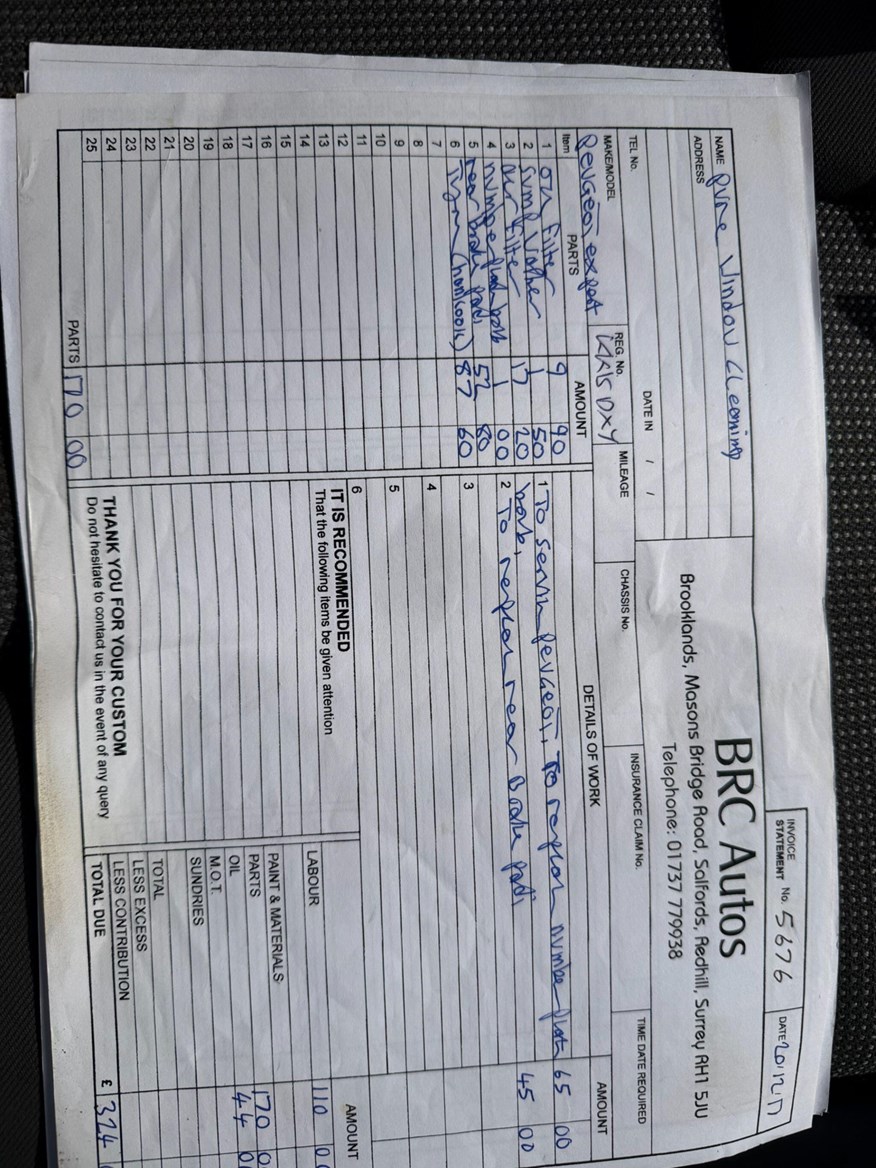 INVOICE
STATEMENT No. 5676 DATE 20/12/17
BRC Autos
Brooklands, Masons Bridge Road, Salfords, Redhill, Surrey RH1 5JU
Telephone: 01737 779938
NAME Pure Window Cleaning
ADDRESS
TEL No. DATE IN / /
MAKE/MODEL REG. No. MILEAGE CHASSIS No. INSURANCE CLAIM No. TIME DATE REQUIRED
Peugeot expert
Item PARTS AMOUNT DETAILS OF WORK AMOUNT
1 Oil Filter 9 90
2 Sump Washer 1 50
3 air Filter 17 20
4 number plate bolt 1 00
5 rear brake pads 52 80
6 Tyre (hankook) 87 60
7
8
9
10
11
12
13
14
15
16
17
18
19
20
21
22
23
24
25
PARTS 170 00
1 To service Peugeot, To replace number plate 65 00
bolt,
2 To replace rear Brake pads 45 00
3
4
5
6
IT IS RECOMMENDED
That the following items be given attention
THANK YOU FOR YOUR CUSTOM
Do not hesitate to contact us in the event of any query
AMOUNT
LABOUR 110 0
PAINT & MATERIALS
PARTS 170 0
OIL 44 0
M.O.T.
SUNDRIES
TOTAL
LESS EXCESS
LESS CONTRIBUTION
TOTAL DUE £ 324